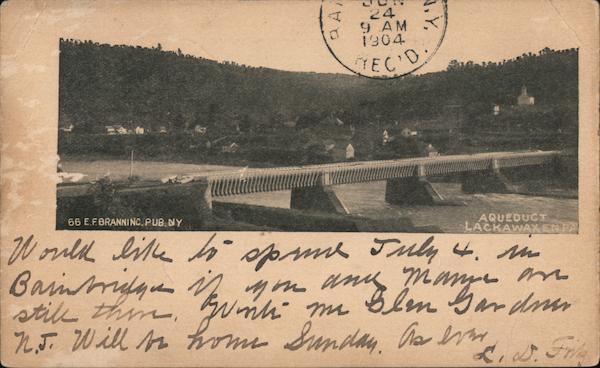 JUN
24
9 AM
1904
REC'D.
N.Y.
66 E.F. BRANNING, PUB. NY
AQUEDUCT
LACKAWAXEN PA
Would like to spend July 4. in
Bainbridge if you and Mamie are
still there. Write me Glen Gardner
N.J. Will be home Sunday. As ever
L. D.